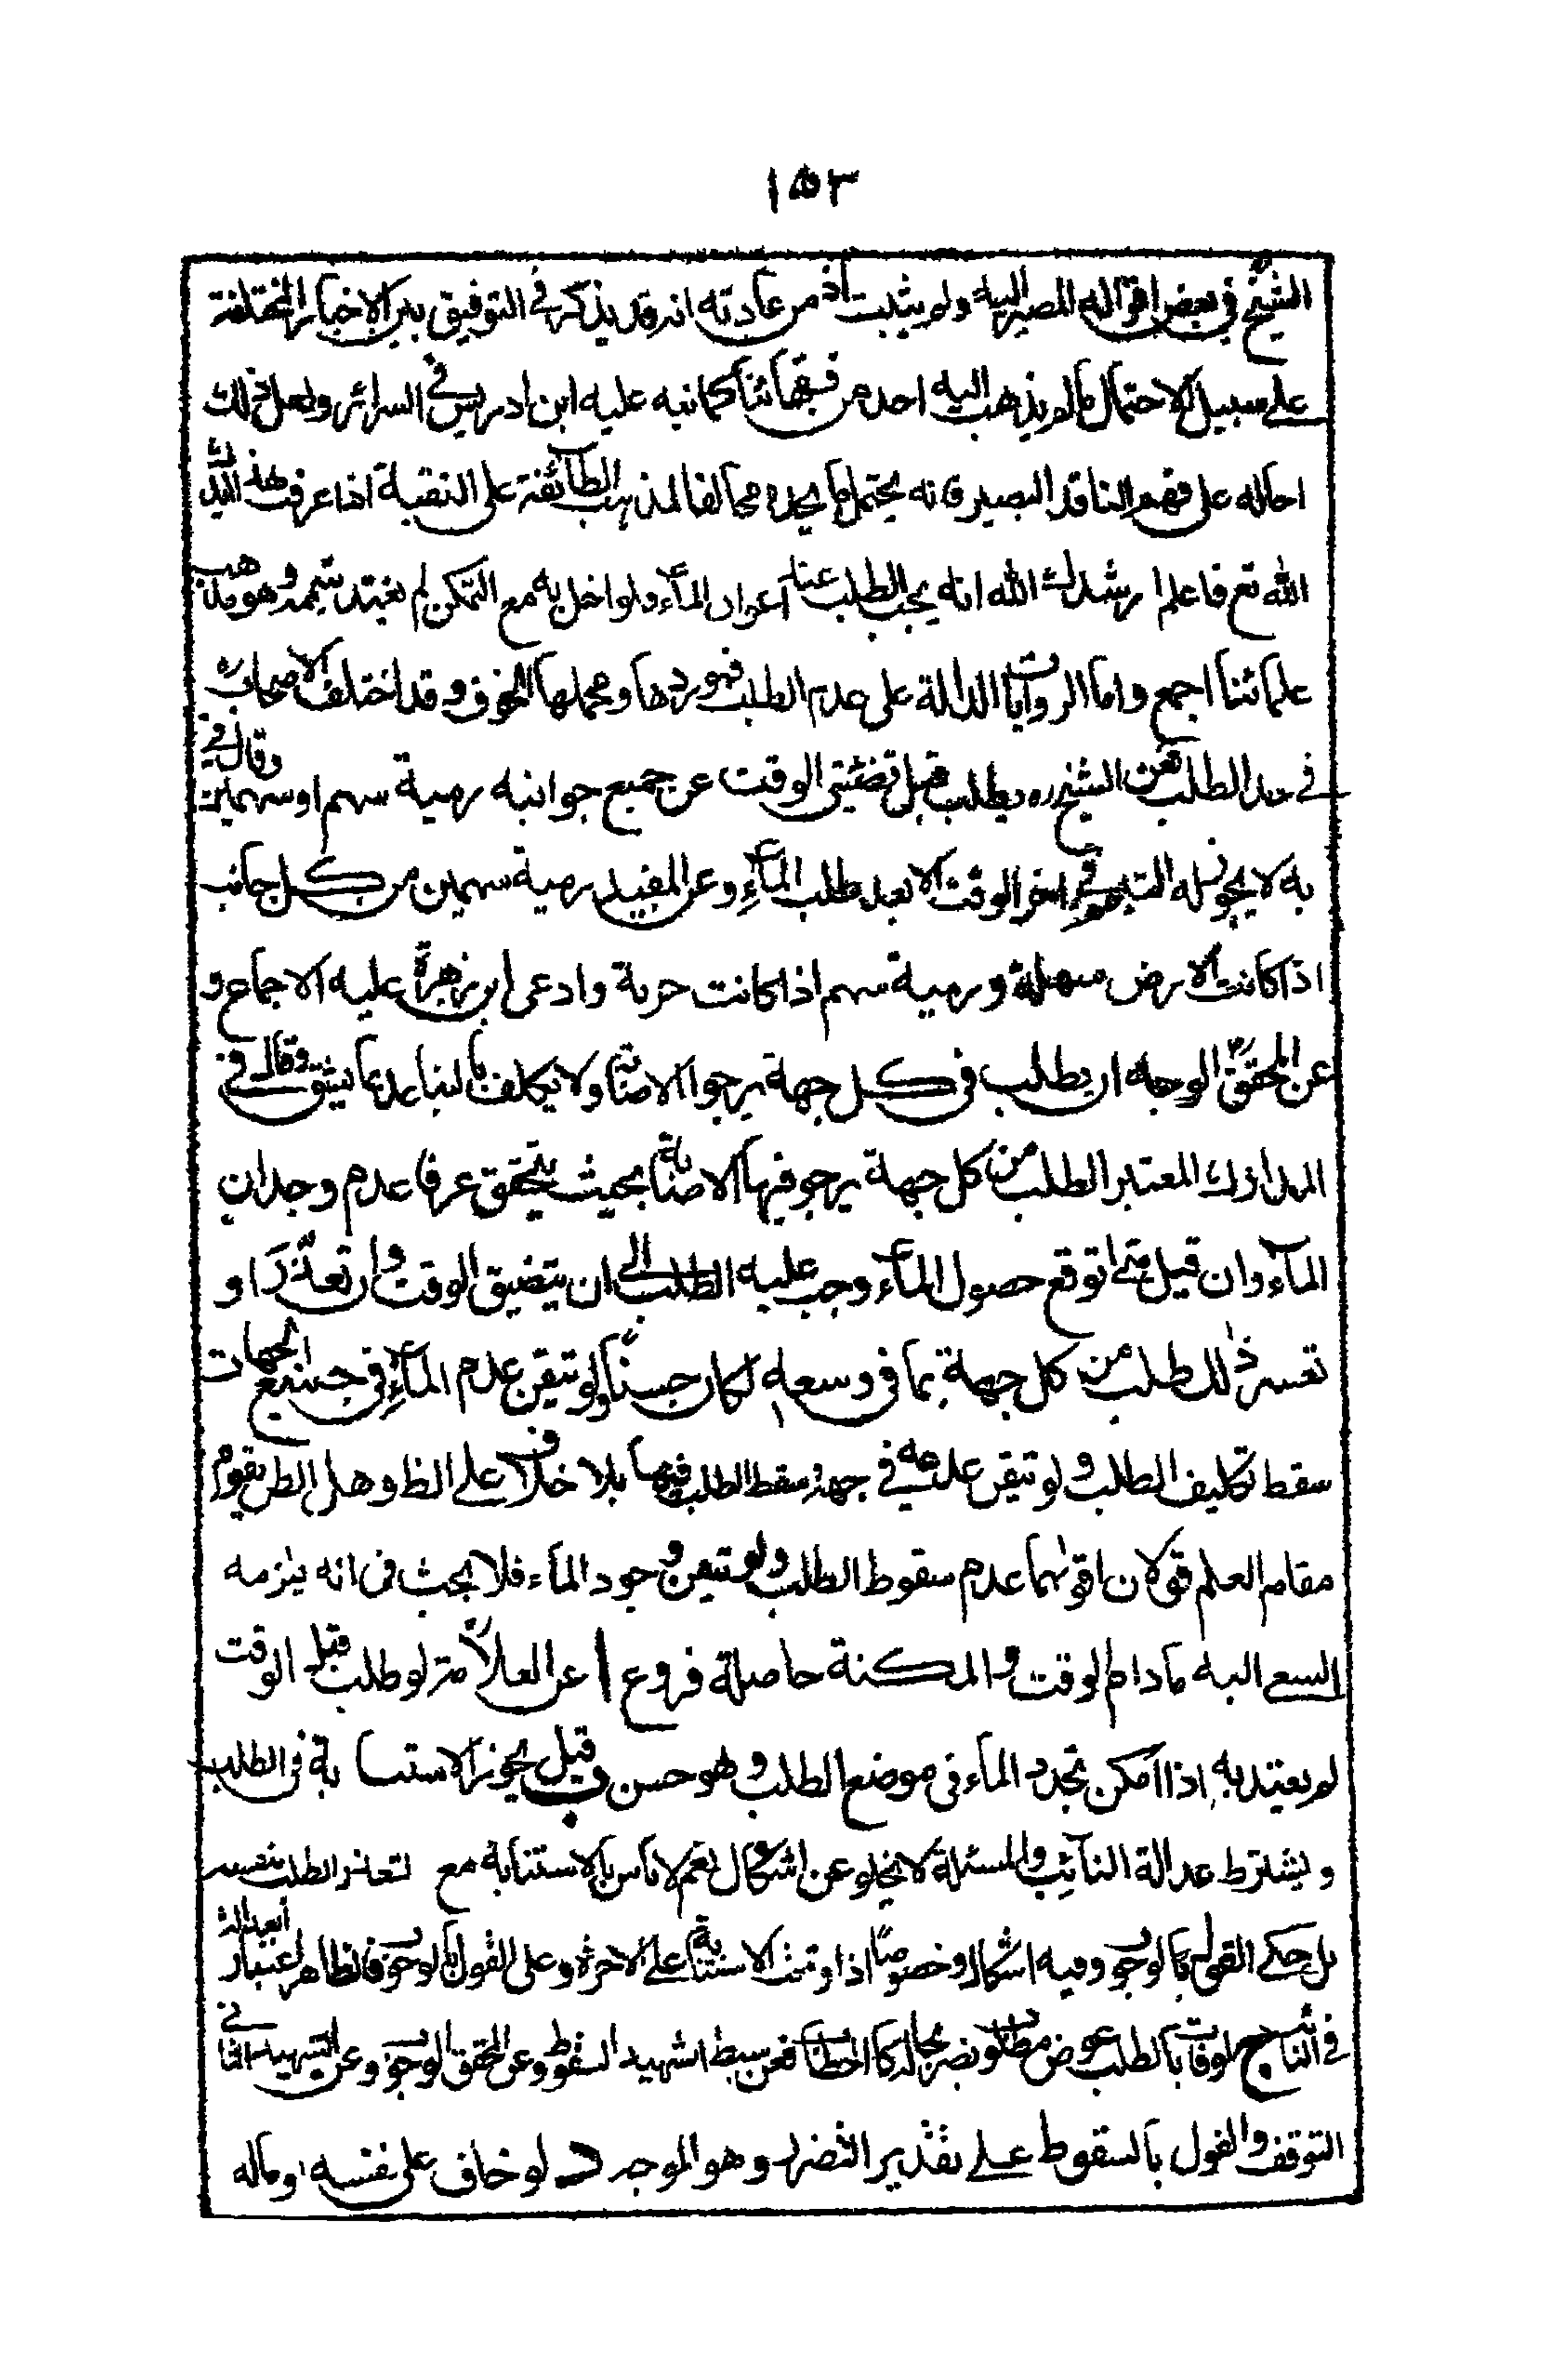 ١٥٣
الشيخ في بعض اقواله المصير اليه ولم يثبت اذ من عادته انه قد يذكر في التوفيق بين الاخبار المختلفة
على سبيل الاحتمال ما لم يذهب اليه احد من فقهائنا كما نبه عليه ابن ادريس في السرائر ولعل ذلك
احاله على فهم الناقد البصير فانه يحتمل ما يجده مخالفا لمذهب الطائفة على التقية اذا عرفت هذا ايدك
الله تع فاعلم ارشدك الله انه يجب الطلب عند اعواز الماء ولو اخل به مع التمكن لم يعتد بتيممه وهو مذهب
علمائنا اجمع واما الروايات الدالة على عدم الطلب فموردها ومحملها الخوف وقد اختلف الاصحاب ره
في حد الطلب فعن الشيخ ره يطلب قبل تضيق الوقت عن جميع جوانبه رمية سهم او سهمين وقال في
به لا يجوز له التيمم في اخر الوقت الا بعد طلب الماء وعن المفيد رمية سهمين من كل جانب
اذا كانت الارض سهلة ورمية سهم اذا كانت حزنة وادعى ابن زهرة عليه الاجماع و
عن المحقق الوجه ان يطلب في كل جهة يرجوا الاصابة ولا يكلف بالتباعد بما يشق وقال في
المدارك المعتبر الطلب من كل جهة يرجو فيها الاصابة بحيث يتحقق عرفا عدم وجدان
الماء وان قيل متى توقع حصول الماء وجب عليه الطلب الى ان يتضيق الوقت وان تعذر او
تعسر ذلك طلب من كل جهة بما في وسعه لكان حسنا ولو تيقن عدم الماء في جميع الجهات
سقط تكليف الطلب ولو تيقن عدمه في جهة سقط الطلب فيها بلا خلاف على الظ وهل الظن يقوم
مقام العلم قولان اقواهما عدم سقوط الطلب ولو تيقن وجود الماء فلا بحث في انه يلزمه
السعي اليه ما دام الوقت والمكنة حاصلة فروع ا عن العلامة لو طلب قبل الوقت
لم يعتد به اذا امكن تجدد الماء في موضع الطلب وهو حسن ب وقيل يجوز الاستنابة في الطلب
ويشترط عدالة النائب والمسئلة لا يخلو عن اشكال نعم لا باس بالاستنابة مع تعذر الطلب بنفسه
بل حكى القول بالوجوب وفيه اشكال وخصوصا اذا وقفت الاستنابة على الاجرة وعلى القول بالوجوب فالظاهر اعتبار العدالة
في النائب ج لو فات بالطلب عوض مطلوب يضر بحاله كالحطاب فعن سبط الشهيد السقوط وعن المحقق الوجوب وعن الشهيد الثاني
التوقف والقول بالسقوط على تقدير التضرر وهو الموجه د لو خاف على نفسه او ماله